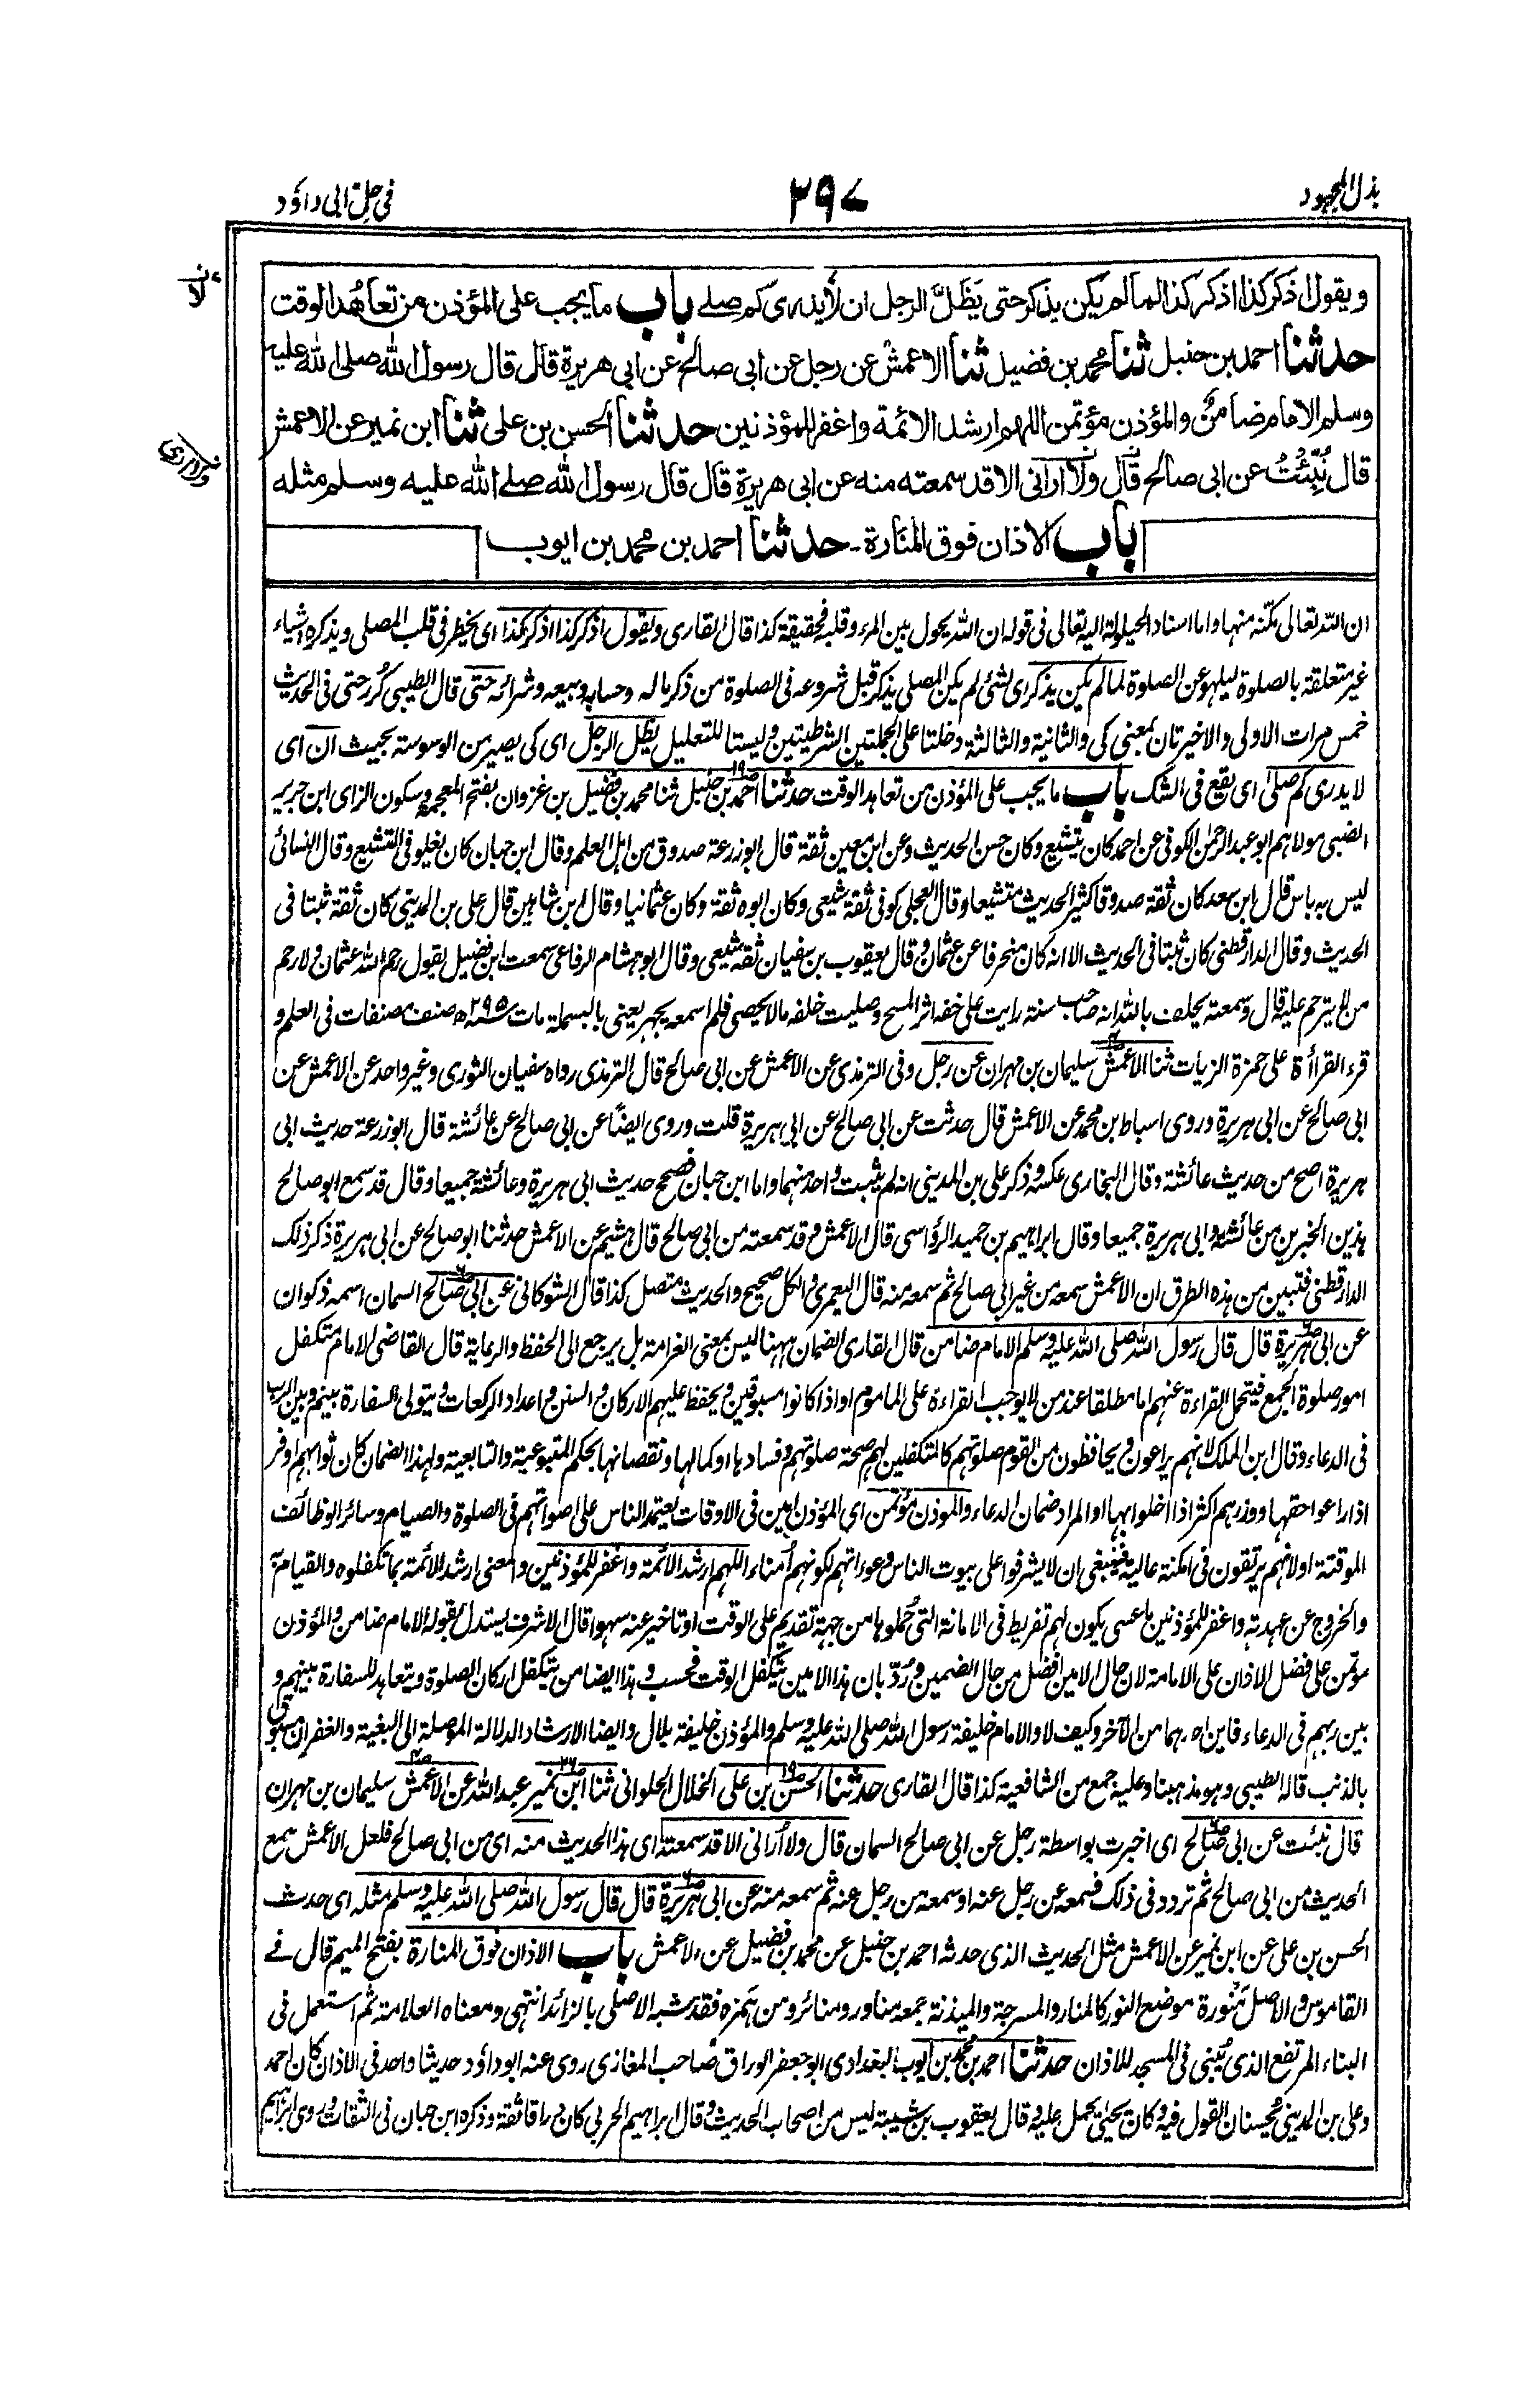 بذل المجهود
٢٩٧
في حل ابى داؤد
ويقول اذكر كذا اذكر كذا لما لم يكن يذكر حتى يَظَلَّ الرجل ان لا يدرى كم صلے باب ما يجب على المؤذن من تعاهُد الوقت
حدثنا احمد بن حنبل ثنا محمد بن فضيل ثنا الاعمش عن رجل عن ابى صالح عن ابى هريرة قال قال رسول الله صلى الله عليه
وسلم الامام ضامن والمؤذن مؤتمن اللهم ارشد الائمة واغفر للمؤذنين حدثنا الحسن بن على ثنا ابن نمير عن الاعمش
قال نُبِّئتُ عن ابى صالح قال ولا ارانى الا قد سمعته منه عن ابى هريرة قال قال رسول الله صلے الله عليه وسلم مثله
باب الاذان فوق المنارة - حدثنا احمد بن محمد بن ايوب
ان الله تعالى مكّنه منها واما اسناد الحيلولة اليه تعالى فى قوله ان الله يحول بين المرء وقلبه فحقيقة كذا قال القارى ويقول اذكر كذا اذكر كذا اى يخطر فى قلب المصلى ويذكره اشياء
غير متعلقة بالصلوة ليلهو عن الصلوة لما لم يكن يذكر اى لشئ لم يكن المصلى يذكر قبل شروعه فى الصلوة من ذكر ماله وحسابه وبيعه وشرائه حتى قال الطيبى كُرر حتى فى الحديث
خمس مرات الاولى والاخيرتان بمعنى كى والثانية والثالثة دخلتا على الجملتين الشرطيتين وليستا للتعليل يظل الرجل اى كى يصير من الوسوسة بحيث ان اى
لا يدرى كم صلى اى يقع فى الشك باب ما يجب على المؤذن من تعاهد الوقت حدثنا احمد بن حنبل ثنا محمد بن فضيل بن غزوان بفتح المعجمة وسكون الزاى ابن جرير
الضبى مولاهم ابو عبد الرحمن الكوفى عن احمد كان يتشيع وكان حسن الحديث وعن ابن معين ثقة قال ابو زرعة صدوق من اهل العلم وقال ابن حبان كان يغلو فى التشيع وقال النسائى
ليس به باس قال ابن سعد كان ثقة صدوقا كثير الحديث متشيعا وقال العجلى كوفى ثقة شيعى وكان ابوه ثقة وكان عثمانيا وقال ابن شاهين قال على بن المدينى كان ثقة ثبتا فى
الحديث وقال الدارقطنى كان ثبتا فى الحديث الا انه كان منحرفا عن عثمان وقال يعقوب بن سفيان ثقة شيعى وقال ابو هشام الرفاعى سمعت ابن فضيل يقول رحم الله عثمان ولا رحم
من لا يترحم عليه قال وسمعته يحلف بالله انه صاحب سنة رايت على خفه اثر المسح وصليت خلفه مالا يحصى فلم اسمعه يجهر يعنى بالبسملة مات سنة ٢٩٥ھ صنف مصنفات فى العلم و
قرء القراءة على حمزة الزيات ثنا الاعمش سليمان بن مهران عن رجل وفى الترمذى عن الاعمش عن ابى صالح قال الترمذى رواه سفيان الثورى وغير واحد عن الاعمش عن
ابى صالح عن ابى هريرة وروى اسباط بن محمد عن الاعمش قال حدثت عن ابى صالح عن ابى هريرة قلت وروى ايضًا عن ابى صالح عن عائشة قال ابو زرعة حديث ابى
هريرة اصح من حديث عائشة وقال البخارى عكسه وذكر على بن المدينى انه لم يثبت واحد منهما واما ابن حبان فصحح حديث ابى هريرة وعائشة جميعا وقال قد سمع ابو صالح
هذين الخبرين من عائشة وابى هريرة جميعا وقال ابراهيم بن حميد الرؤاسى قال الاعمش وقد سمعته من ابى صالح قال هشيم عن الاعمش حدثنا ابو صالح عن ابى هريرة ذكر ذلك
الدارقطنى فتبين من هذه الطرق ان الاعمش سمعه من غير ابى صالح ثم سمعه منه قال اليعمرى والكل صحيح والحديث متصل كذا قال الشوكانى عن ابى صالح السمان اسمه ذكوان
عن ابى هريرة قال قال رسول الله صلى الله عليه وسلم الامام ضامن قال القارى الضمان ههنا ليس بمعنى الغرامة بل يرجع الى الحفظ والرعاية قال القاضى الامام متكفل
امور صلوة الجمع فيتحمل القراءة عنهم اما مطلقا عند من لا يوجب القراءة على الماموم او اذا كانوا مسبوقين ويحفظ عليهم الاركان والسنن واعداد الركعات ويتولى السفارة بينهم وبين الرب
فى الدعاء وقال ابن الملك لانهم يراعون ويحافظون من القوم صلوتهم كالمتكفلين لهم صحة صلوتهم وفسادها او كمالها ونقصانها بحكم المتبوعية والتابعية ولهذا الضمان كان ثوابهم اوفر
اذا راعوا حقها ووزرهم اكثر اذا اخلوا بها او المراد ضمان الدعاء والمؤذن مؤتمن اى المؤذن امين فى الاوقات يعتمد الناس على اصواتهم فى الصلوة والصيام وسائر الوظائف
الموقتة اولانهم يرتقون فى امكنة عالية فينبغى ان لا يشرفوا على بيوت الناس وعوراتهم لكونهم اُمناء اللهم ارشد الائمة واغفر للمؤذنين والمعنى ارشد الائمة بما تكفلوه والقيام به
والخروج عن عهدته واغفر للمؤذنين ما عسى يكون لهم تفريط فى الامانة التى حُملوها من جهة تقديم على الوقت او تاخير عنه سهوا قال الاشرف يستدل بقوله الامام ضامن والمؤذن
مؤتمن على فضل الاذان على الامامة لان حال الامين افضل من حال الضمين ورُدّ بان هذا الامين يتكفل الوقت فحسب وهذا الضامن يتكفل اركان الصلوة ويتعاهد للسفارة بينهم و
بين ربهم فى الدعاء فاين احدهما من الآخر وكيف لا والامام خليفة رسول الله صلى الله عليه وسلم والمؤذن خليفة بلال وايضا الارشاد الدلالة الموصلة الى البغية والغفران مسبوق
بالذنب قاله الطيبى وهو مذهبنا وعليه جمع من الشافعية كذا قال القارى حدثنا الحسن بن على الخلال الحلوانى ثنا ابن نمير عبد الله عن الاعمش سليمان بن مهران
قال نبئت عن ابى صالح اى اخبرت بواسطة رجل عن ابى صالح السمان قال ولا اُرانى الا قد سمعته اى هذا الحديث منه اى من ابى صالح فلعل الاعمش سمع
الحديث من ابى صالح ثم تردد فى ذلك فسمعه عن رجل عنه او سمعه من رجل عنه ثم سمعه منه عن ابى هريرة قال قال رسول الله صلى الله عليه وسلم مثله اى حدث
الحسن بن على عن ابن نمير عن الاعمش مثل الحديث الذى حدثه احمد بن حنبل عن محمد بن فضيل عن الاعمش باب الاذان فوق المنارة بفتح الميم قال فے
القاموس والاصل مَنْورة موضع النور كالمنار والمسرجة والميذنة جمعه مناور ومنائر ومن همزه فقد شبه الاصلى بالزائد انتهى ومعناه العلامة ثم استعمل فى
البناء المرتفع الذى يُبنى فى المسجد للاذان حدثنا احمد بن محمد بن ايوب البغدادى ابو جعفر الوراق صاحب المغازى روى عنه ابو داؤد حديثا واحدا فى الاذان كان احمد
وعلى بن المدينى يُحسنان القول فيه وكان يحيى يحمل عليه وقال يعقوب بن شيبة ليس من اصحاب الحديث وقال ابراهيم الحربى كان وراقا ثقة وذكره ابن حبان فى الثقات وروى ابراهيم